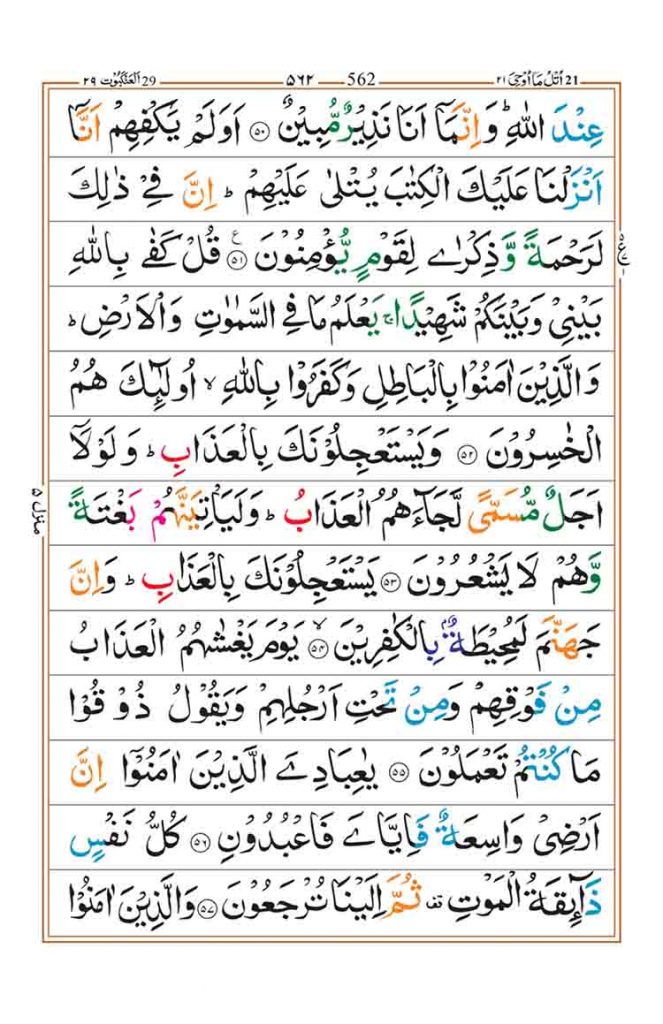 اُتْلُ مَاۤ اُوْحِیَ ٢١ 21 562 ٥٦٢ اَلْعَنْكَبُوْت ٢٩ 29
عِنْدَ اللّٰهِ ؕ وَاِنَّمَاۤ اَنَا نَذِیْرٌ مُّبِیْنٌ ۝٥٠ اَوَلَمْ یَكْفِهِمْ اَنَّاۤ
اَنْزَلْنَا عَلَیْكَ الْكِتٰبَ یُتْلٰی عَلَیْهِمْ ؕ اِنَّ فِیْ ذٰلِكَ
لَرَحْمَةً وَّذِكْرٰی لِقَوْمٍ یُّؤْمِنُوْنَ ۝٥١ ع قُلْ كَفٰی بِاللّٰهِ
بَیْنِیْ وَبَیْنَكُمْ شَهِیْدًا ۚ یَعْلَمُ مَا فِی السَّمٰوٰتِ وَالْاَرْضِ ؕ
وَالَّذِیْنَ اٰمَنُوْا بِالْبَاطِلِ وَكَفَرُوْا بِاللّٰهِ ۙ اُولٰٓئِكَ هُمُ
الْخٰسِرُوْنَ ۝٥٢ وَیَسْتَعْجِلُوْنَكَ بِالْعَذَابِ ؕ وَلَوْلَاۤ
اَجَلٌ مُّسَمًّی لَّجَآءَهُمُ الْعَذَابُ ؕ وَلَیَاْتِیَنَّهُمْ بَغْتَةً
وَّهُمْ لَا یَشْعُرُوْنَ ۝٥٣ یَسْتَعْجِلُوْنَكَ بِالْعَذَابِ ؕ وَاِنَّ
جَهَنَّمَ لَمُحِیْطَةٌۢ بِالْكٰفِرِیْنَ ۙ۝٥٤ یَوْمَ یَغْشٰىهُمُ الْعَذَابُ
مِنْ فَوْقِهِمْ وَمِنْ تَحْتِ اَرْجُلِهِمْ وَیَقُوْلُ ذُوْقُوْا
مَا كُنْتُمْ تَعْمَلُوْنَ ۝٥٥ یٰعِبَادِیَ الَّذِیْنَ اٰمَنُوْۤا اِنَّ
اَرْضِیْ وَاسِعَةٌ فَاِیَّایَ فَاعْبُدُوْنِ ۝٥٦ كُلُّ نَفْسٍ
ذَآئِقَةُ الْمَوْتِ ۫ ثُمَّ اِلَیْنَا تُرْجَعُوْنَ ۝٥٧ وَالَّذِیْنَ اٰمَنُوْا
منزل ٥